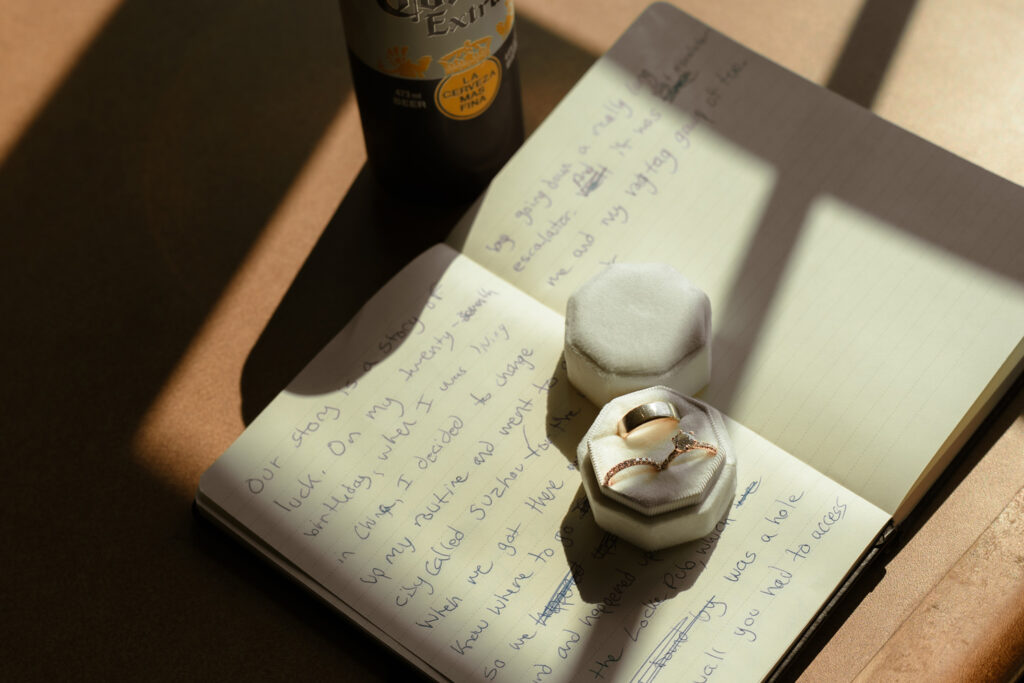 Extra
LA
CERVEZA
MAS
FINA
473ml
BEER
Our story is a story of
luck. On my twenty-
birthday, when I was living
in China, I decided to change
up my routine and went to
city called Suzhou for the
When we got there
know where to go
so we
and happened
the Locke Pub, which
was a hole
wall you had to access
by going down a really
escalator. it was
me and my rag-tag gang of